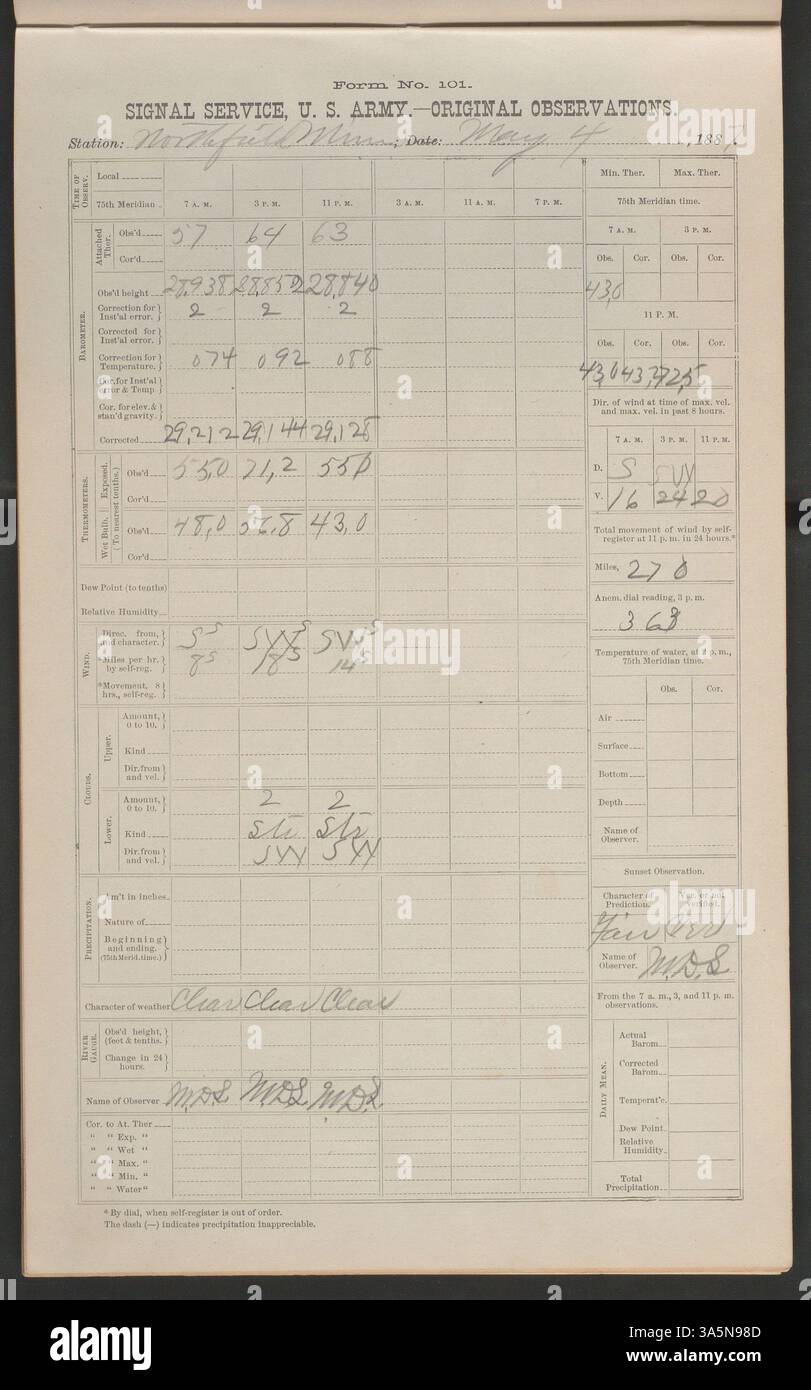 Form No. 101.
SIGNAL SERVICE, U. S. ARMY.—ORIGINAL OBSERVATIONS.
Station: Northfield Minn; Date: May 4, 1887.
TIME OF OBSERV. Local Min. Ther. Max. Ther.
75th Meridian 7 A. M. 3 P. M. 11 P. M. 3 A. M. 11 A. M. 7 P. M. 75th Meridian time.
7 A. M. 3 P. M.
BAROMETER.
Attached Ther. Obs'd 57 64 63
Cor'd Obs. Cor. Obs. Cor.
Obs'd height 28,938 28,850 28,840 43,0
Correction for Inst'al error. 2 2 2 11 P. M.
Corrected for Inst'al error. Obs. Cor. Obs. Cor.
Correction for Temperature. 074 092 088 43,0 72,5
Cor. for Inst'al error & Temp
Cor. for elev. & stan'd gravity.
Corrected 29,212 29,144 29,128
Dir. of wind at time of max. vel. and max. vel. in past 8 hours.
7 A. M. 3 P. M. 11 P. M.
D. S SW
V. 16 24 20
THERMOMETERS.
(To nearest tenths.)
Exposed. Obs'd 55,0 71,2 55,0
Cor'd
Wet Bulb. Obs'd 48,0 56,8 43,0
Cor'd
Total movement of wind by self-register at 11 p. m. in 24 hours.*
Miles, 270
Dew Point (to tenths)
Relative Humidity
Anem. dial reading, 3 p. m.
368
WIND.
Direc. from, and character. S S SW S SW S
*Miles per hr. by self-reg. 8 S 18 S 14 S
*Movement, 8 hrs., self-reg.
Temperature of water, at 2 p. m., 75th Meridian time.
Obs. Cor.
Air
Surface
Bottom
Depth
Name of Observer.
CLOUDS.
Upper. Amount, 0 to 10.
Kind
Dir. from and vel.
Lower. Amount, 0 to 10. 2 2
Kind Str Str
Dir. from and vel. SW SW
Sunset Observation.
Character of Prediction. Ver. or not verified.
Fair Verd
Name of Observer. M.D.S.
PRECIPITATION.
Am't in inches.
Nature of
Beginning and ending. (75th Merid. time.)
Character of weather Clear Clear Clear
From the 7 a. m., 3, and 11 p. m. observations.
DAILY MEAN.
Actual Barom.
Corrected Barom.
Temperat'e.
Dew Point
Relative Humidity.
Total Precipitation.
RIVER GAUGE.
Obs'd height, (feet & tenths.)
Change in 24 hours.
Name of Observer M.D.S. M.D.S. M.D.S.
Cor. to At. Ther
" " Exp. "
" " Wet "
" " Max. "
" " Min. "
" " Water "
* By dial, when self-register is out of order.
The dash (—) indicates precipitation inappreciable.
alamy
Image ID: 3A5N98D
www.alamy.com